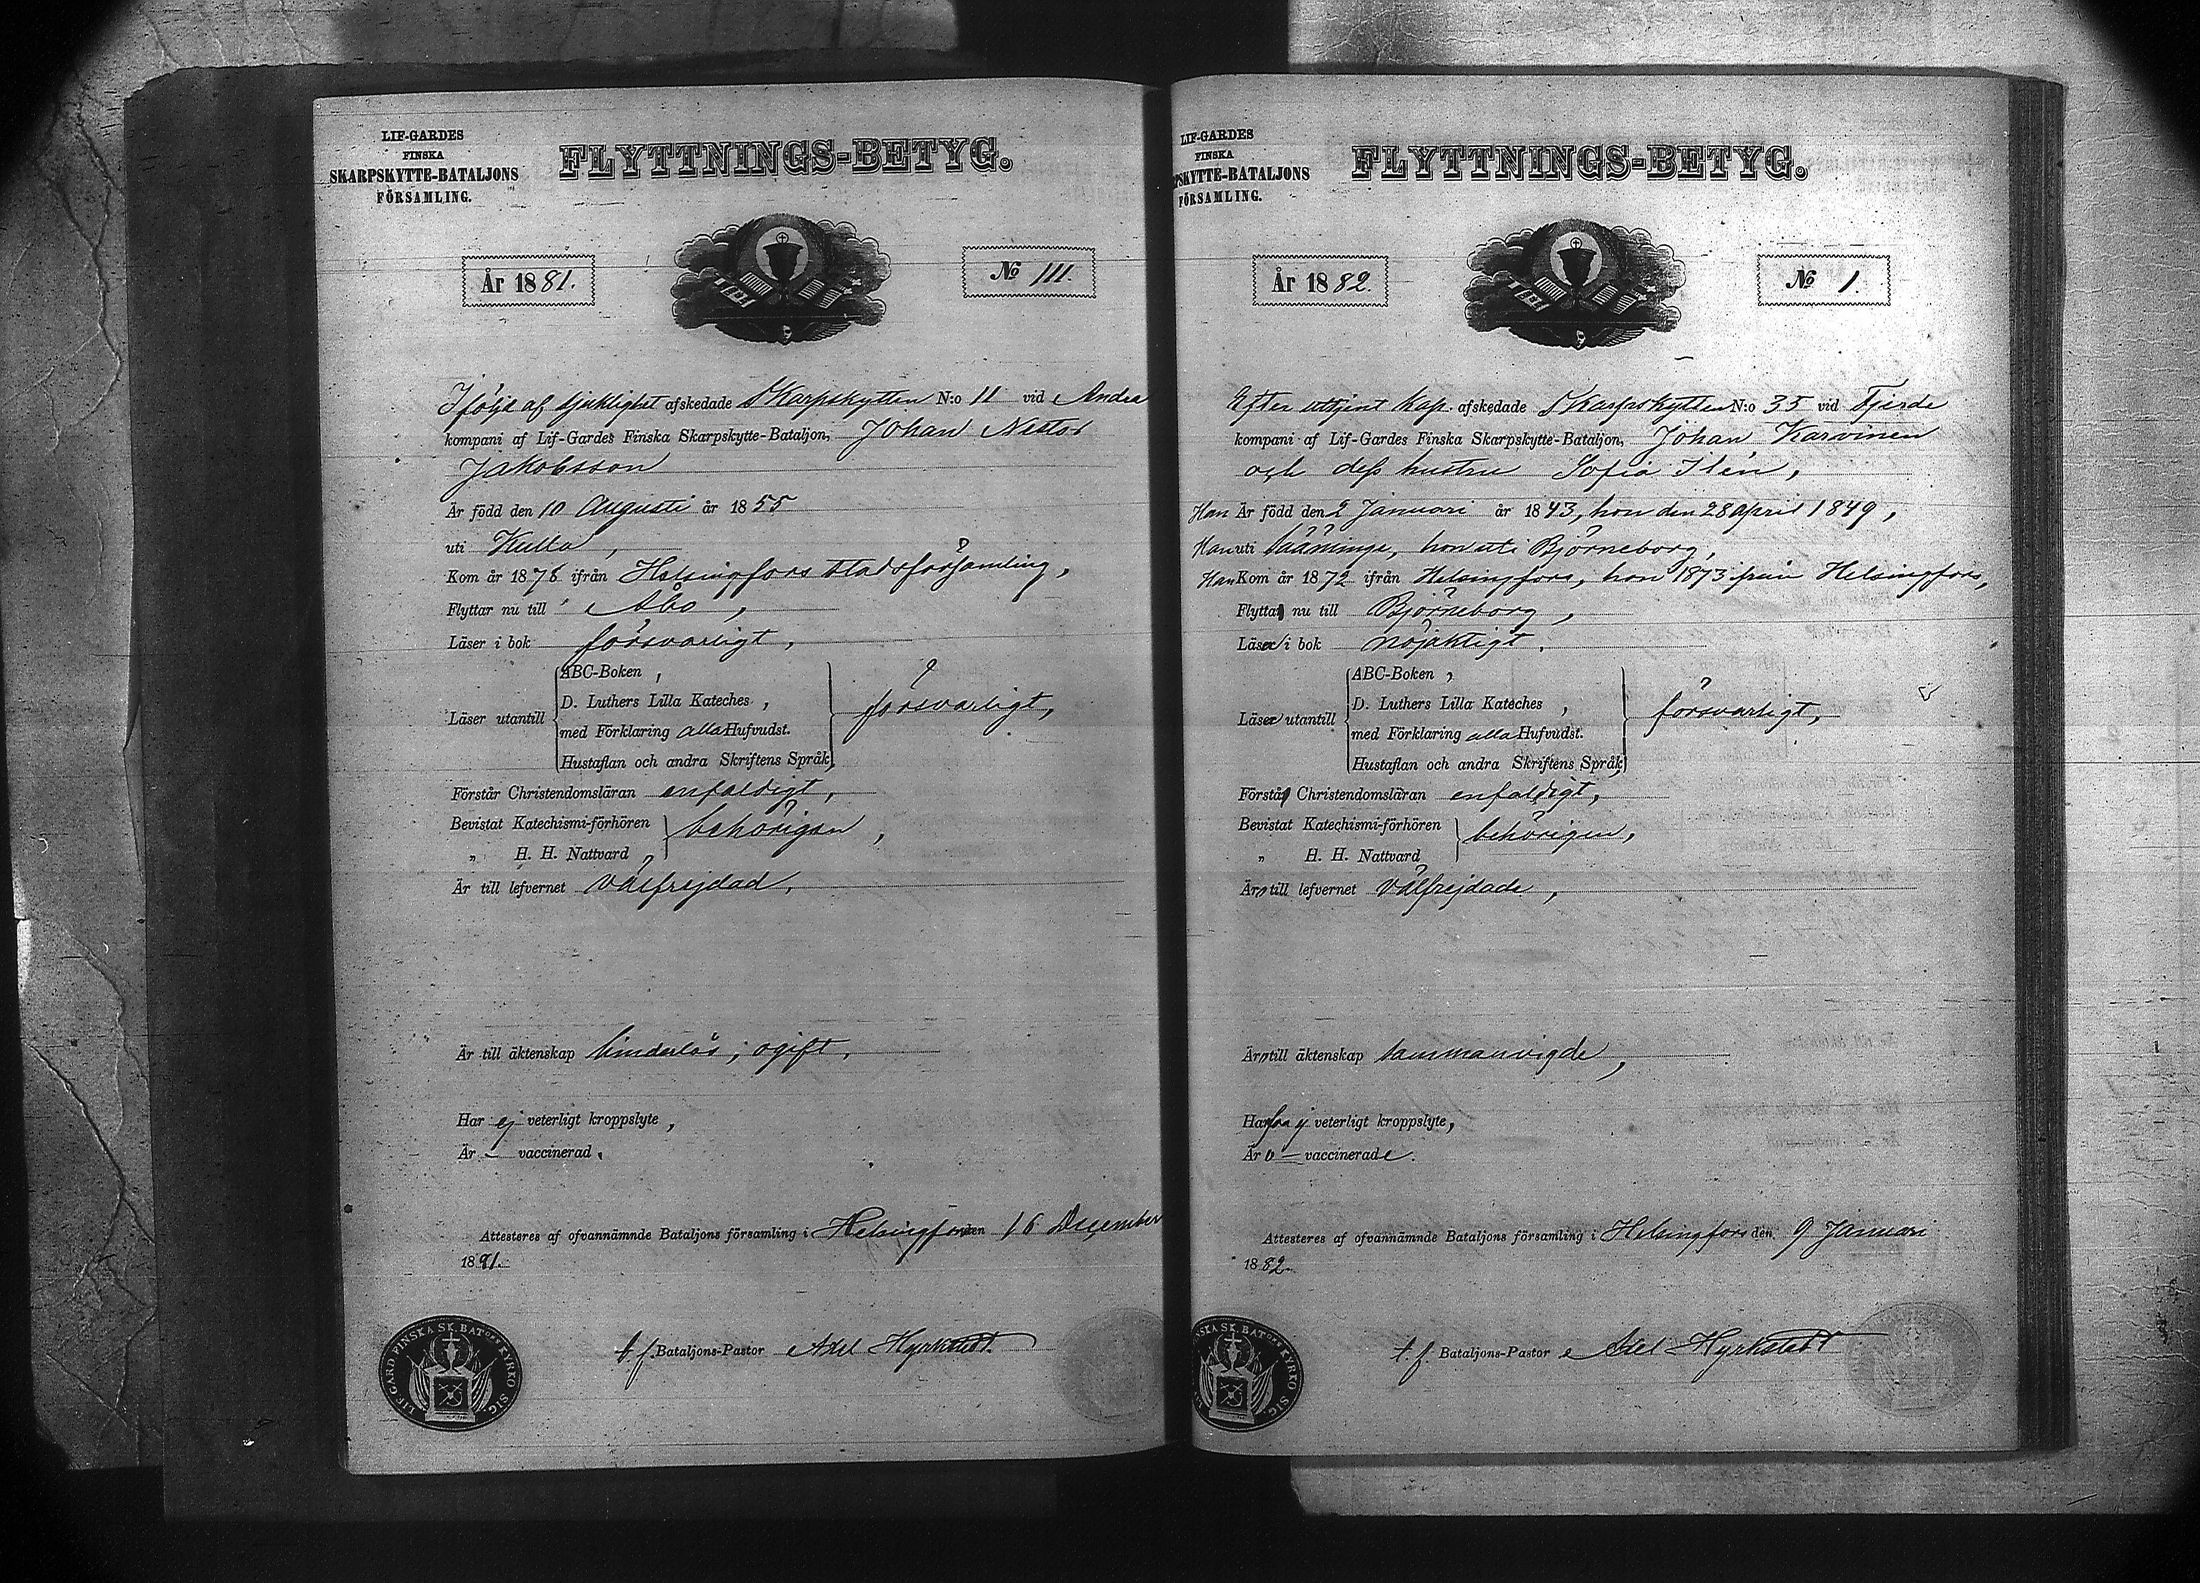 LIF-GARDES
FINSKA
SKARPSKYTTE-BATALJONS
FÖRSAMLING.
FLYTTNINGS-BETYG.
År 1881.
No 111.
I följd af sjuklighet afskedade Skarpskytten N:o 11 vid Andra
kompani af Lif-Gardes Finska Skarpskytte-Bataljon, Johan Nestor
Jakobsson
Är född den 10 Augusti år 1855
uti Kulla,
Kom år 1878 ifrån Helsingfors stadsförsamling,
Flyttar nu till Åbo,
Läser i bok försvarligt,
ABC-Boken,
D. Luthers Lilla Kateches,
Läser utantill försvarligt,
med Förklaring alla Hufvudst.
Hustaflan och andra Skriftens Språk,
Förstår Christendomsläran enfaldigt,
Bevistat Katechismi-förhören behörigen,
„ H. H. Nattvard
Är till lefvernet välfrejdad,
Är till äktenskap hinderlös, ogift,
Har ej veterligt kroppslyte,
Är — vaccinerad.
Attesteres af ofvannämnde Bataljons församling i Helsingfors den 16 December
1881.
t. f. Bataljons-Pastor Axel Hyrkstedt
LIF-GARD FINSKA SK. BATONS KYRKO SIG.
LIF-GARDES
FINSKA
PSKYTTE-BATALJONS
FÖRSAMLING.
FLYTTNINGS-BETYG.
År 1882
No 1.
Efter uttjent kap. afskedade Skarpskytten N:o 35 vid Fjerde
kompani af Lif-Gardes Finska Skarpskytte-Bataljon, Johan Karvinen
och dess hustru Sofia Ilén,
Han Är född den 2 Januari år 1843, hon den 28 April 1849,
Han uti Sääminge, hon uti Björneborg,
Han Kom år 1872 ifrån Helsingfors, hon 1873 från Helsingfors,
Flytta nu till Björneborg,
Läsa i bok nöjaktigt,
ABC-Boken,
D. Luthers Lilla Kateches,
Läsa utantill försvarligt,
med Förklaring alla Hufvudst.
Hustaflan och andra Skriftens Språk
Förstå Christendomsläran enfaldigt,
Bevistat Katechismi-förhören behörigen,
„ H. H. Nattvard
Äro till lefvernet välfrejdade,
Äro till äktenskap sammanvigde,
Hafva ej veterligt kroppslyte,
Äro — vaccinerade.
Attesteres af ofvannämnde Bataljons församling i Helsingfors den 9 Januari
1882.
t. f. Bataljons-Pastor Axel Hyrkstedt
NSKA SK. BATONS KYRKO SIG.